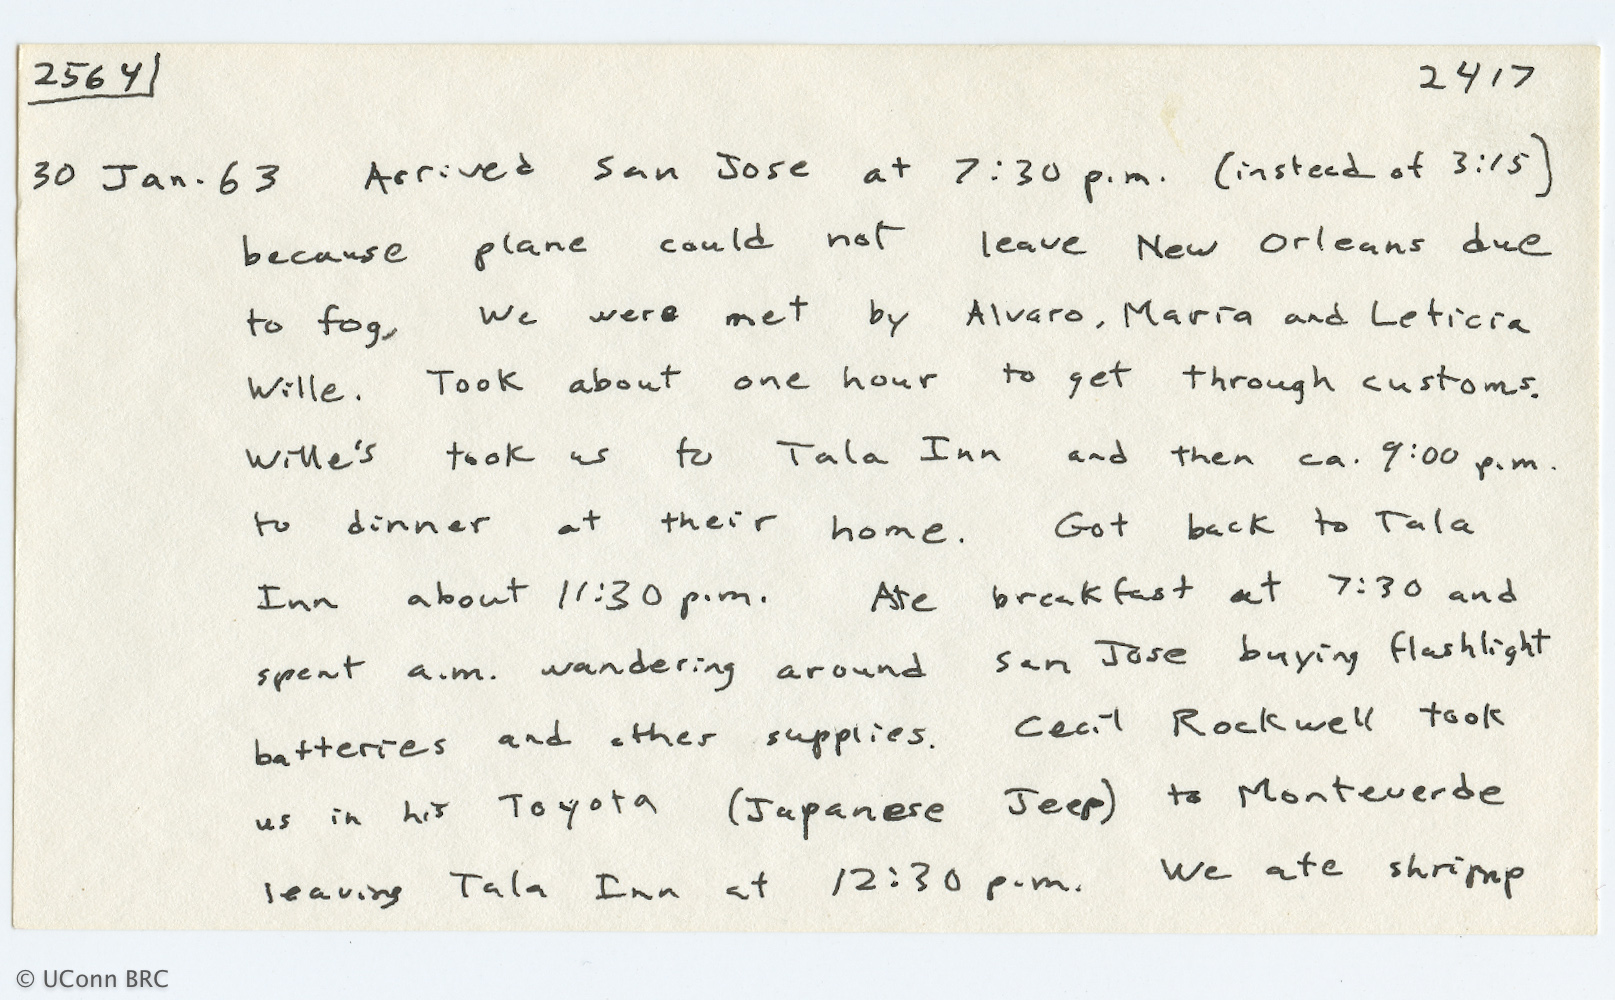 2564 2417
30 Jan. 63 Arrived San Jose at 7:30 p.m. (instead of 3:15)
because plane could not leave New Orleans due
to fog. We were met by Alvaro, Maria and Leticia
Wille. Took about one hour to get through customs.
Wille's took us to Tala Inn and then ca. 9:00 p.m.
to dinner at their home. Got back to Tala
Inn about 11:30 p.m. Ate breakfast at 7:30 and
spent a.m. wandering around San Jose buying flashlight
batteries and other supplies. Cecil Rockwell took
us in his Toyota (Japanese Jeep) to Monteverde
leaving Tala Inn at 12:30 p.m. We ate shrimp
© UConn BRC